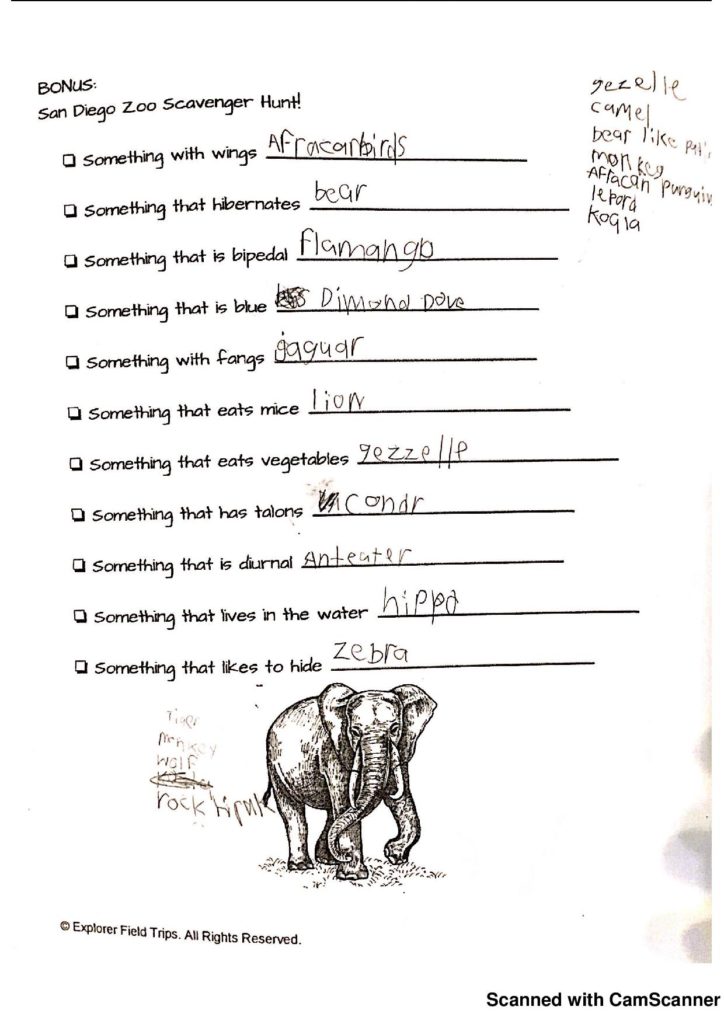 BONUS:
San Diego Zoo Scavenger Hunt!
gezelle
camel
bear like
monkey
Affacan purguin
lepord
kogla
Something with wings Afracanbirds
Something that hibernates bear
Something that is bipedal flamango
Something that is blue Dimond Dove
Something with fangs jaguar
Something that eats mice lion
Something that eats vegetables gezzelle
Something that has talons condr
Something that is diurnal Anteater
Something that lives in the water hippo
Something that likes to hide zebra
Tiger
monkey
wolf
rock
© Explorer Field Trips. All Rights Reserved.
Scanned with CamScanner